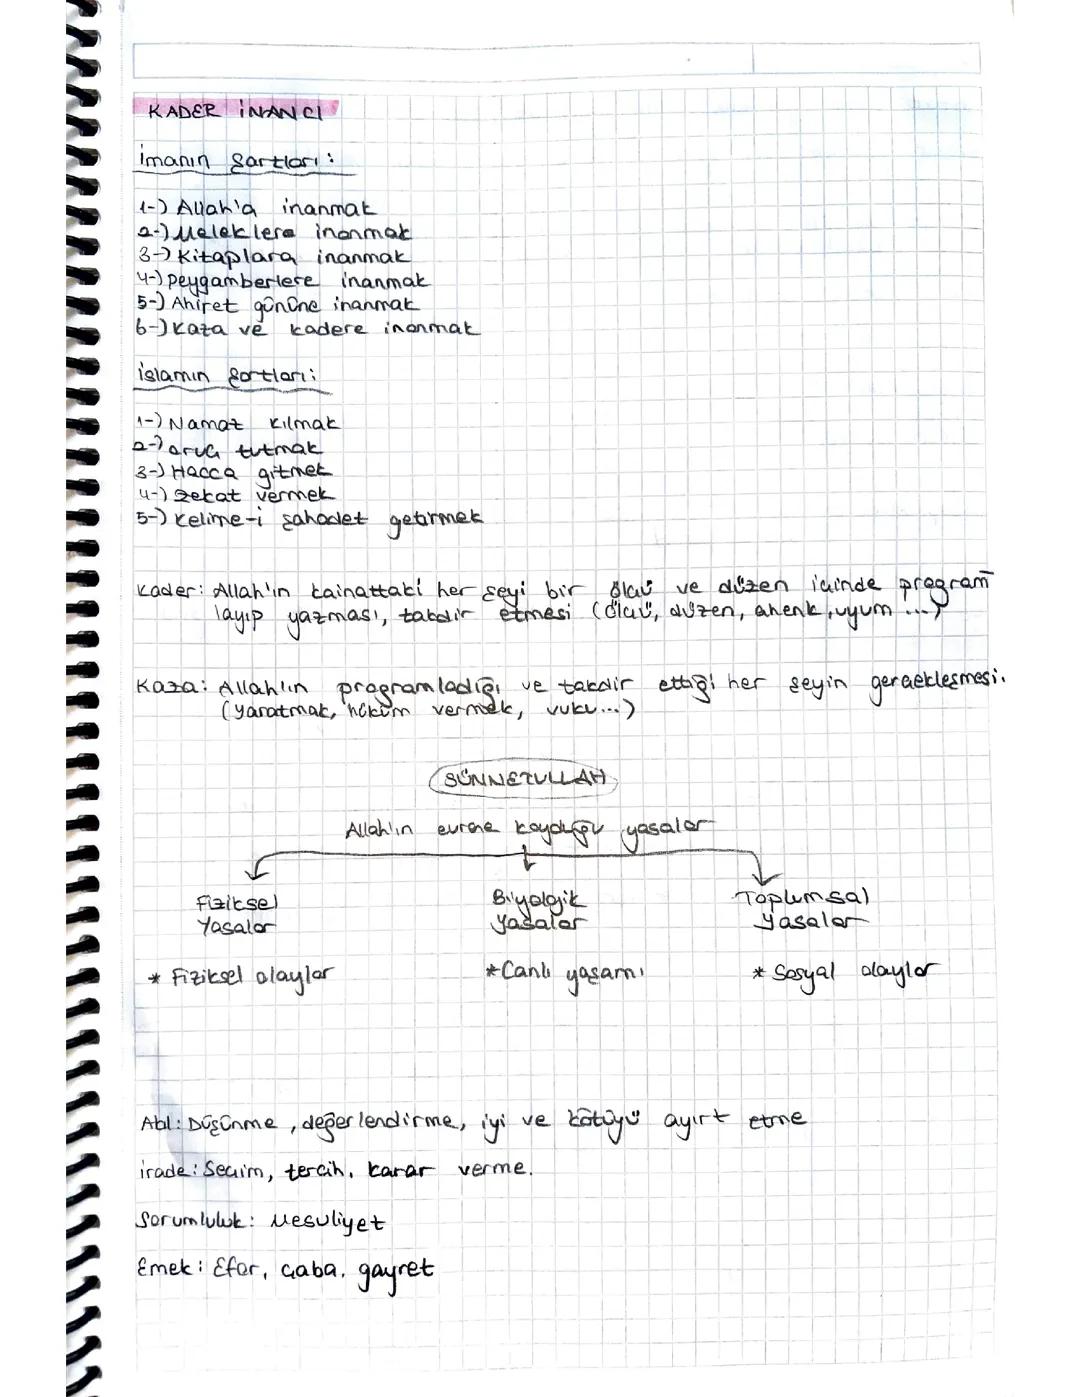 KADER İNANCI
İmanın Şartları:
1-) Allah'a inanmak
2-) Meleklere inanmak
3-) Kitaplara inanmak
4-) peygamberlere inanmak
5-) Ahiret gününe inanmak
6-) kaza ve kadere inanmak
İslamın Şartları:
1-) Namaz kılmak
2-) oruç tutmak
3-) Hacca gitmek
4-) zekat vermek
5-) kelime-i şahadet getirmek
Kader: Allah'ın kainattaki her şeyi bir ölçü ve düzen içinde program
layıp yazması, takdir etmesi (ölçü, düzen, ahenk, uyum ...)
Kaza: Allah'ın programladığı ve takdir ettiği her şeyin gerçekleşmesi.
(yaratmak, hüküm vermek, vuku...)
SÜNNETULLAH
Allah'ın evrene koyduğu yasalar
Fiziksel Biyolojik Toplumsal
Yasalar yasalar yasalar
* Fiziksel olaylar *Canlı yaşamı * Sosyal olaylar
Akıl: Düşünme, değerlendirme, iyi ve kötüyü ayırt etme
irade: Seçim, tercih, karar verme.
Sorumluluk: Mesuliyet
Emek: Efor, çaba, gayret